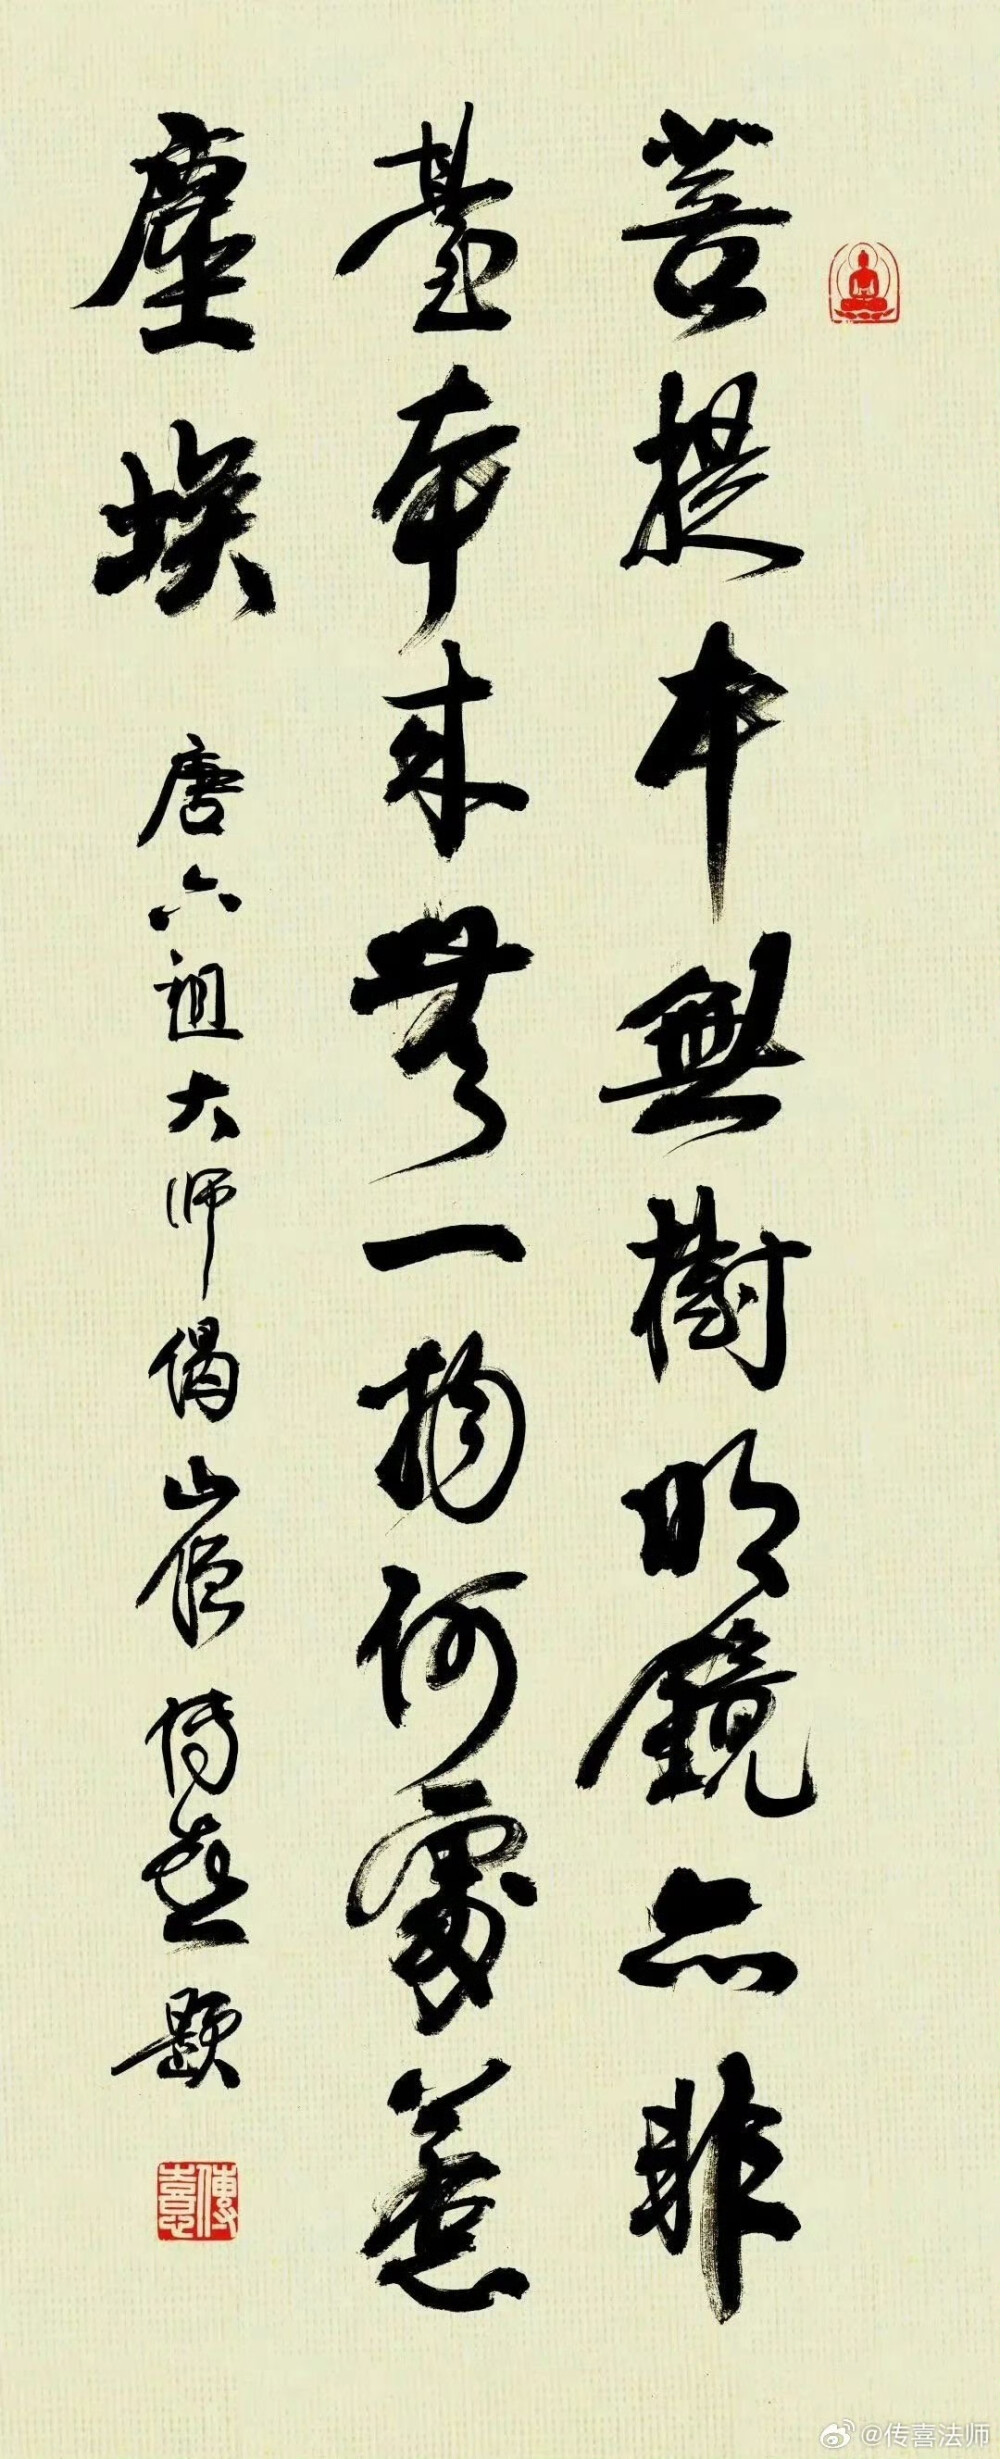 菩提本無樹明鏡亦非
臺本來无一物何處惹
塵埃
唐六祖大师偈山僧传喜題
傳喜
@传喜法师